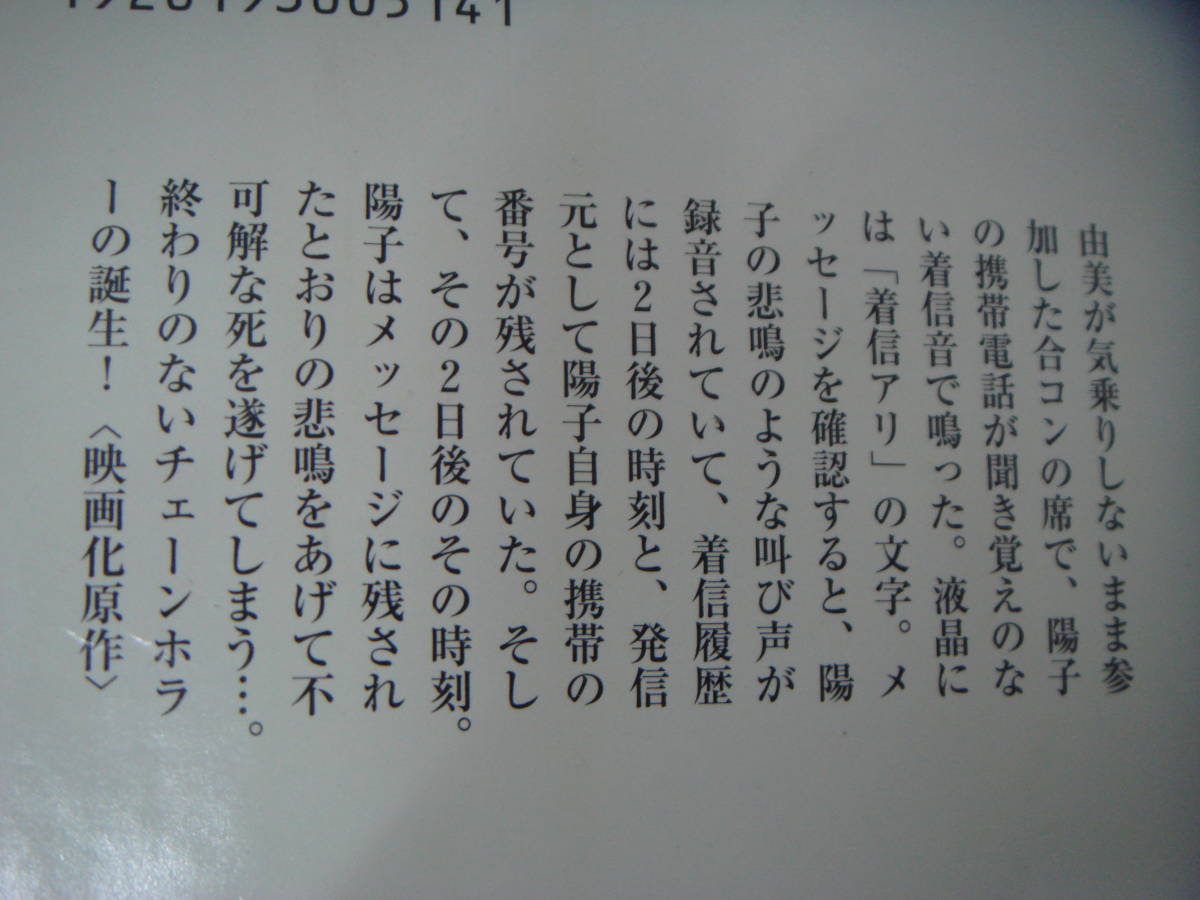 1920193005141
由美が気乗りしないまま参
加した合コンの席で、陽子
の携帯電話が聞き覚えのな
い着信音で鳴った。液晶に
は「着信アリ」の文字。メ
ッセージを確認すると、陽
子の悲鳴のような叫び声が
録音されていて、着信履歴
には2日後の時刻と、発信
元として陽子自身の携帯の
番号が残されていた。そし
て、その2日後のその時刻。
陽子はメッセージに残され
たとおりの悲鳴をあげて不
可解な死を遂げてしまう…。
終わりのないチェーンホラ
ーの誕生！〈映画化原作〉